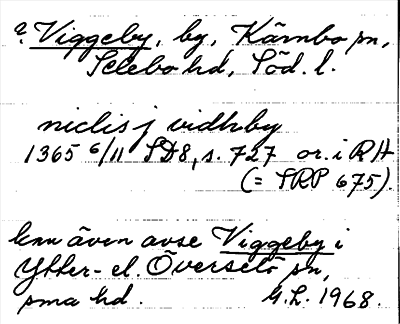 ? Viggeby, by, Kärnbo sn,
Selebo hd, Söd. l.
niclis j vidhby
1365 6/11 SD8, s. 727 or. i RA
(= SRP 675).
kan även avse Viggeby i
Ytter- el. Överselö sn,
sma hd. G.L. 1968.